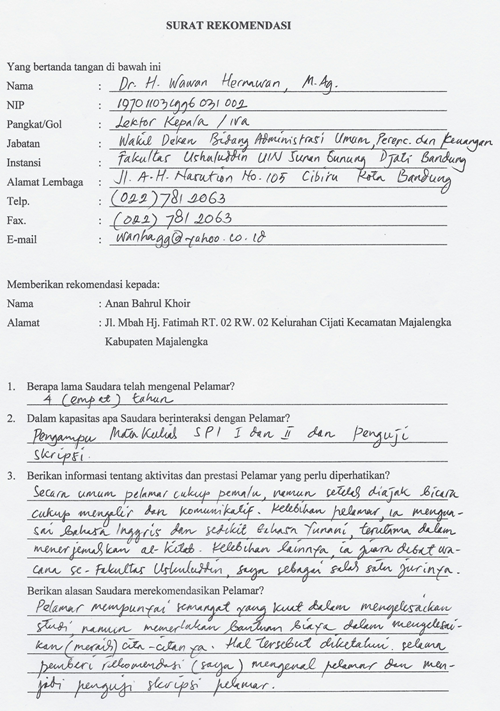 SURAT REKOMENDASI
Yang bertanda tangan di bawah ini
Nama : Dr. H. Wawan Hernawan, M.Ag.
NIP : 19701103 1996 031 002
Pangkat/Gol : Lektor Kepala / IVa
Jabatan : Wakil Dekan Bidang Administrasi Umum, Perenc. dan Keuangan
Instansi : Fakultas Ushuluddin UIN Sunan Gunung Djati Bandung
Alamat Lembaga : Jl. A.H. Nasution No. 105 Cibiru Kota Bandung
Telp. : (022) 781 2063
Fax. : (022) 781 2063
E-mail : wanhagg@yahoo.co.id
Memberikan rekomendasi kepada:
Nama : Anan Bahrul Khoir
Alamat : Jl. Mbah Hj. Fatimah RT. 02 RW. 02 Kelurahan Cijati Kecamatan Majalengka
Kabupaten Majalengka
1. Berapa lama Saudara telah mengenal Pelamar?
4 (empat) tahun
2. Dalam kapasitas apa Saudara berinteraksi dengan Pelamar?
Pengampu Mata Kuliah SPI I dan II dan Penguji
Skripsi.
3. Berikan informasi tentang aktivitas dan prestasi Pelamar yang perlu diperhatikan?
Secara umum pelamar cukup pemalu, namun setelah diajak bicara
cukup mengalir dan komunikatif. Kelebihan pelamar, ia mengua-
sai bahasa Inggris dan sedikit bahasa Yunani, terutama dalam
menerjemahkan al-kitab. Kelebihan lainnya, ia juara debat wa-
cana se-Fakultas Ushuluddin, saya sebagai salah satu jurinya.
Berikan alasan Saudara merekomendasikan Pelamar?
Pelamar mempunyai semangat yang kuat dalam mengelesaikan
studi namun memerlukan bantuan biaya dalam mengelesai-
kan (meraih) cita-citanya. Hal tersebut diketahui, selama
pemberi rekomendasi (saya) mengenal pelamar dan men-
jadi penguji skripsi pelamar.